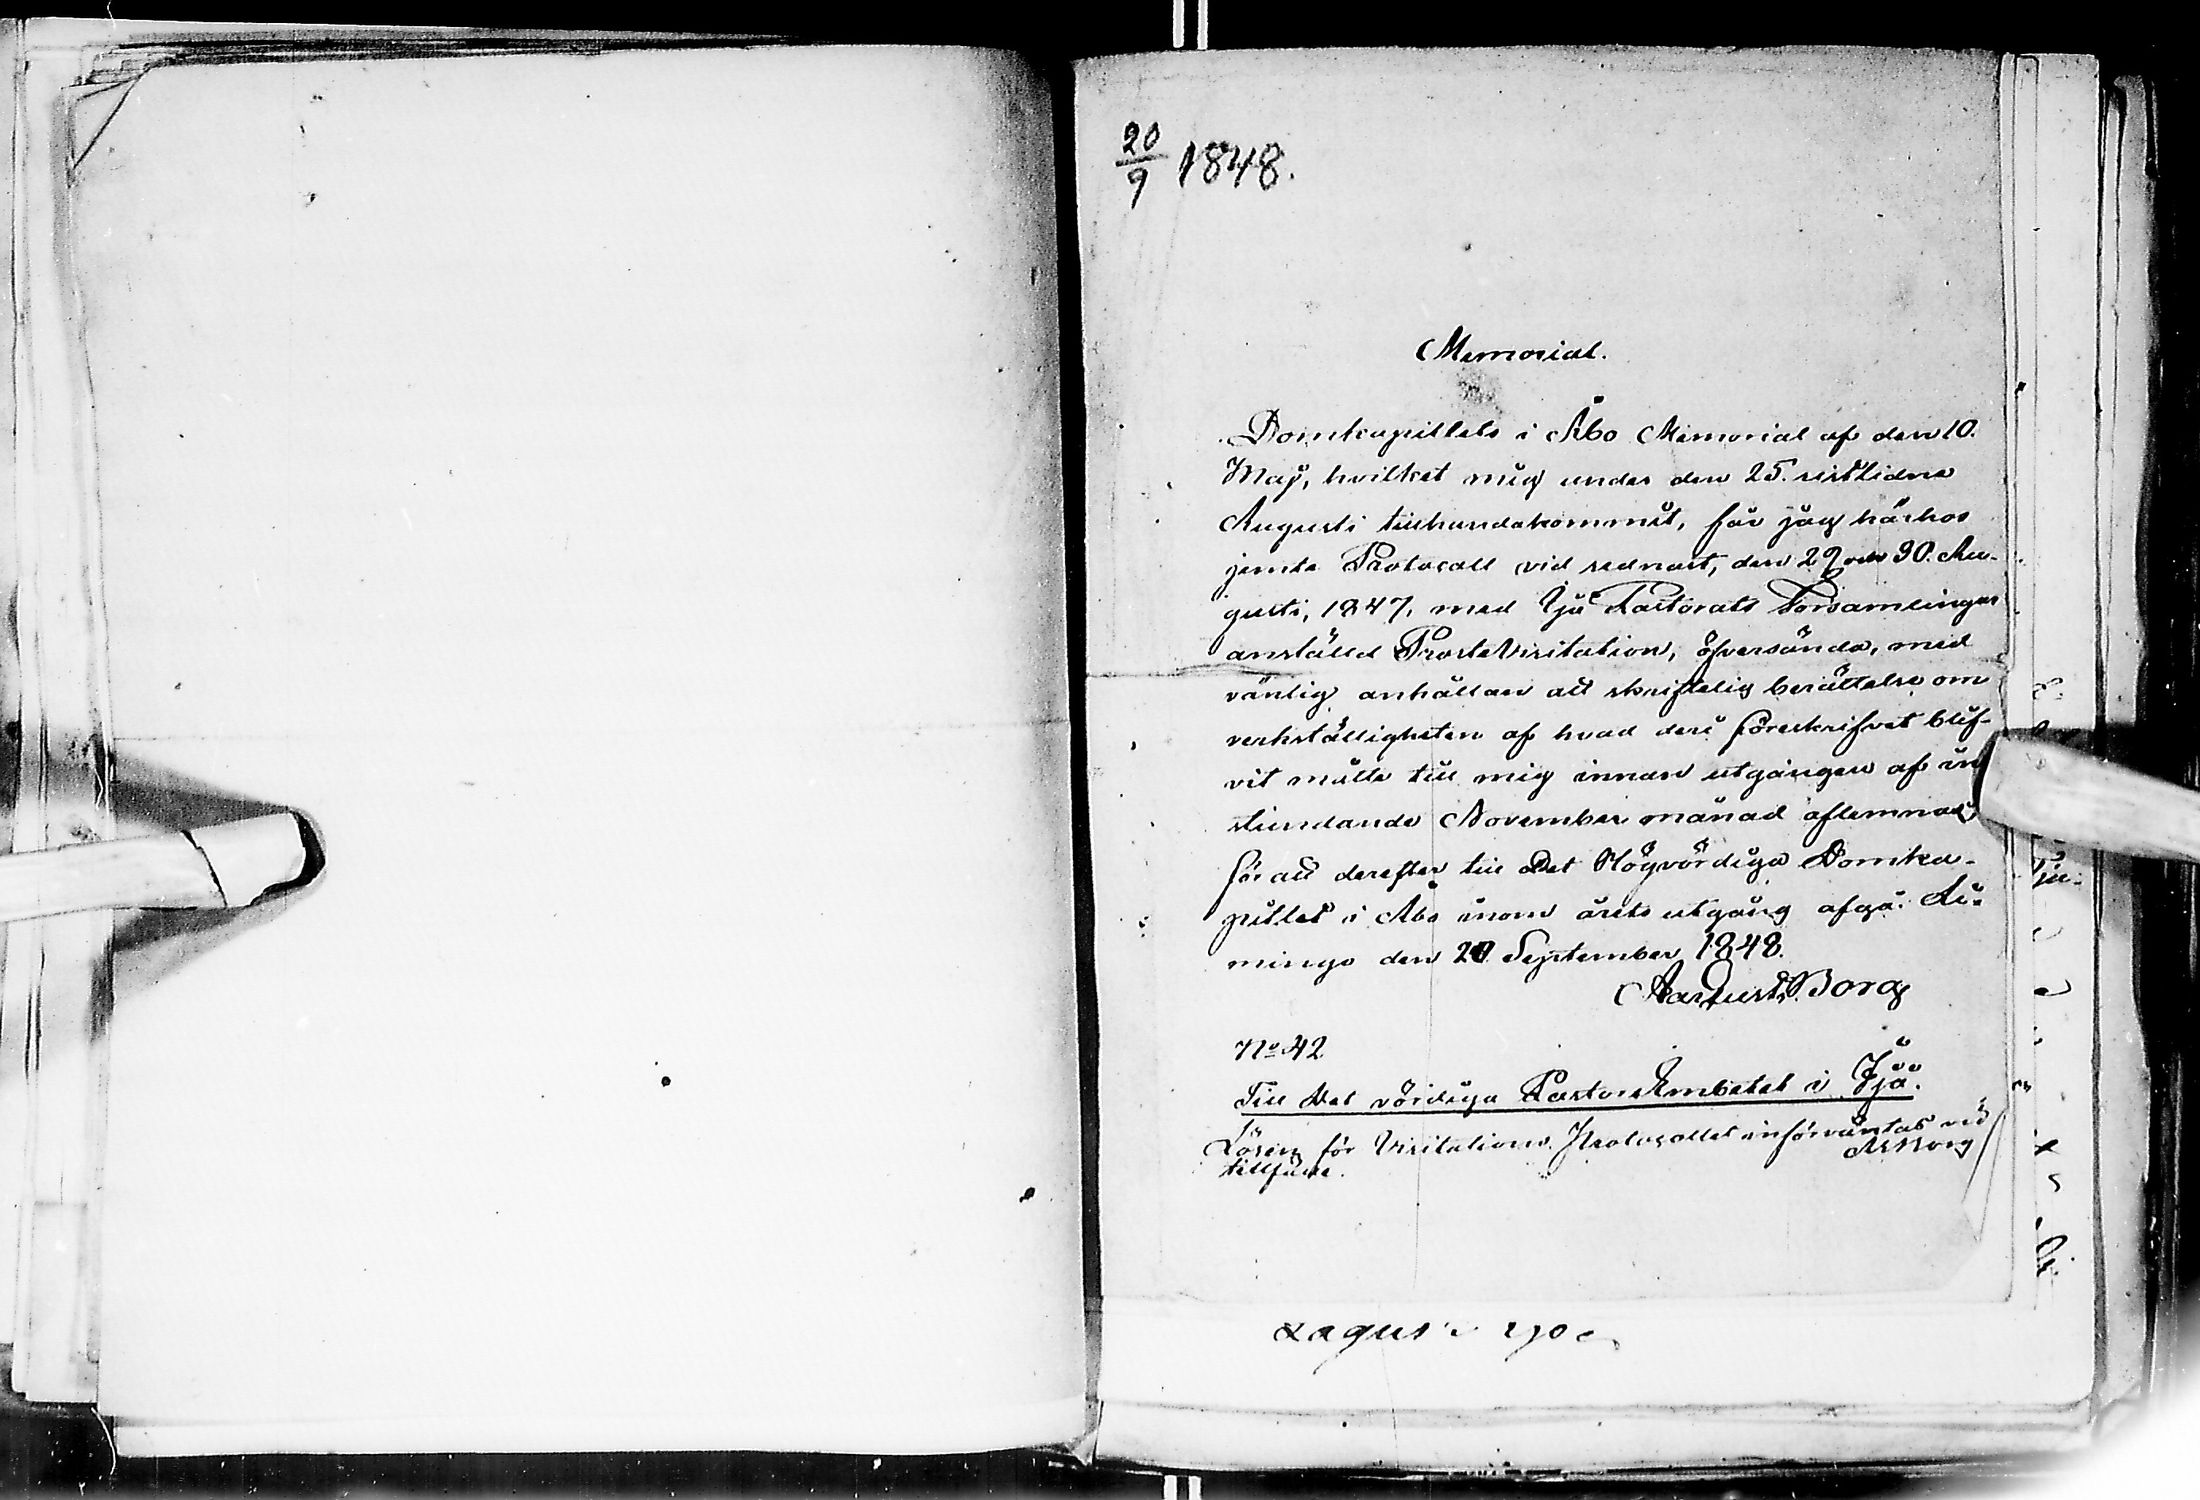 20/9 1848.
Memorial.
Domkapitlets i Åbo Memorial af den 10.
Maji, hvilket mig under den 25. sistlidne
Augusti tillhandakommit, får jag härhos
jemte Protocoll vid sednast, den 29 och 30. Au-
gusti, 1847, med Ijo Pastorats Församlingar
anställd ProsteVisitation, öfversända, med
vänlig anhållan att skriftelig berättelse om
verkställigheten af hvad deri föreskrifvet blif-
vit måtte till mig innan utgången af in
stundande November månad aflemnas,
för att derefter till Det Högvördiga Domka-
pitlet i Åbo inom årets utgång afgå. Li-
mingo den 20 September 1848.
Borg
No 42
Till Det vördiga PastorsEmbetet i Ijo.
Lösen för Visitations Protocollet införväntas vid
tillfälle. Borg